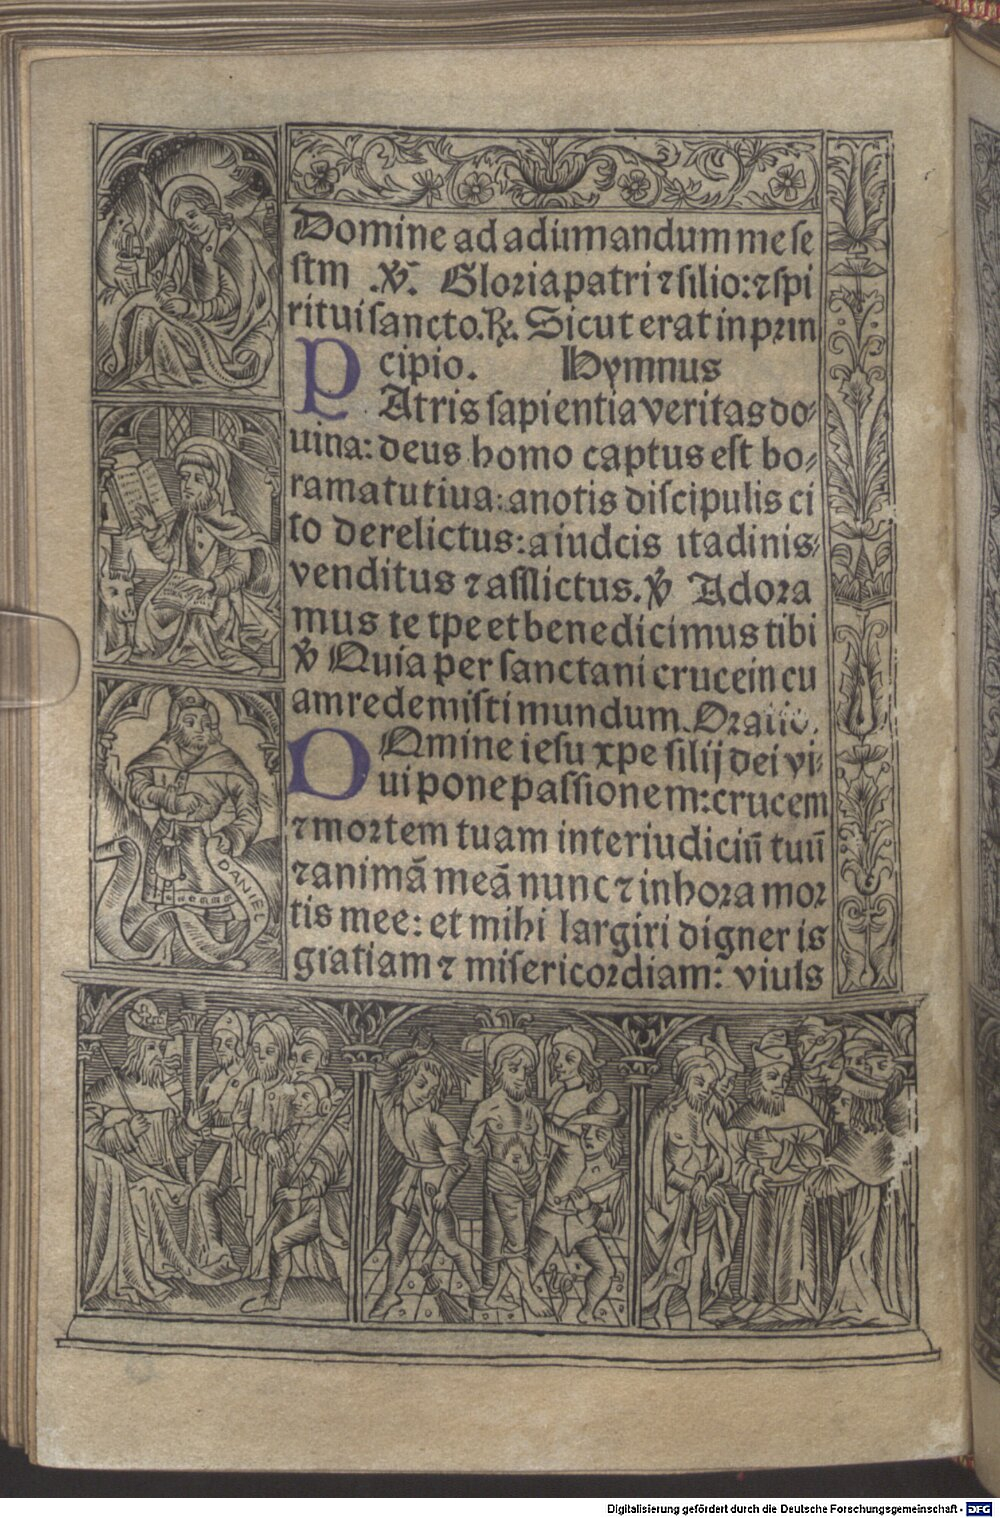 Domine ad adiuuandum me fe
ſtin .℣. Gloria patri ⁊ filio: ⁊ ſpi
ritui ſancto. ℟. Sicut erat in prin
cipio. Hymnus
PAtris ſapientia veritas do⸗
uina: deus homo captus eſt ho⸗
ra matutina: a notis diſcipulis ci
to derelictus: a iudeis
venditus ⁊ afflictus. ℣ Adora
mus te xpe et benedicimus tibi
℣ Quia per ſanctam crucem tu
am redemiſti mundum. Oratio.
DOmine ieſu xpe filij dei vi⸗
ui pone paſſionem: crucem
⁊ mortem tuam inter iudiciū tuū
⁊ animā meā nunc ⁊ in hora mor
tis mee: et mihi largiri digneris
gratiam ⁊ miſericordiam: viuis
DANIEL
Digitalisierung gefördert durch die Deutsche Forschungsgemeinschaft - DFG